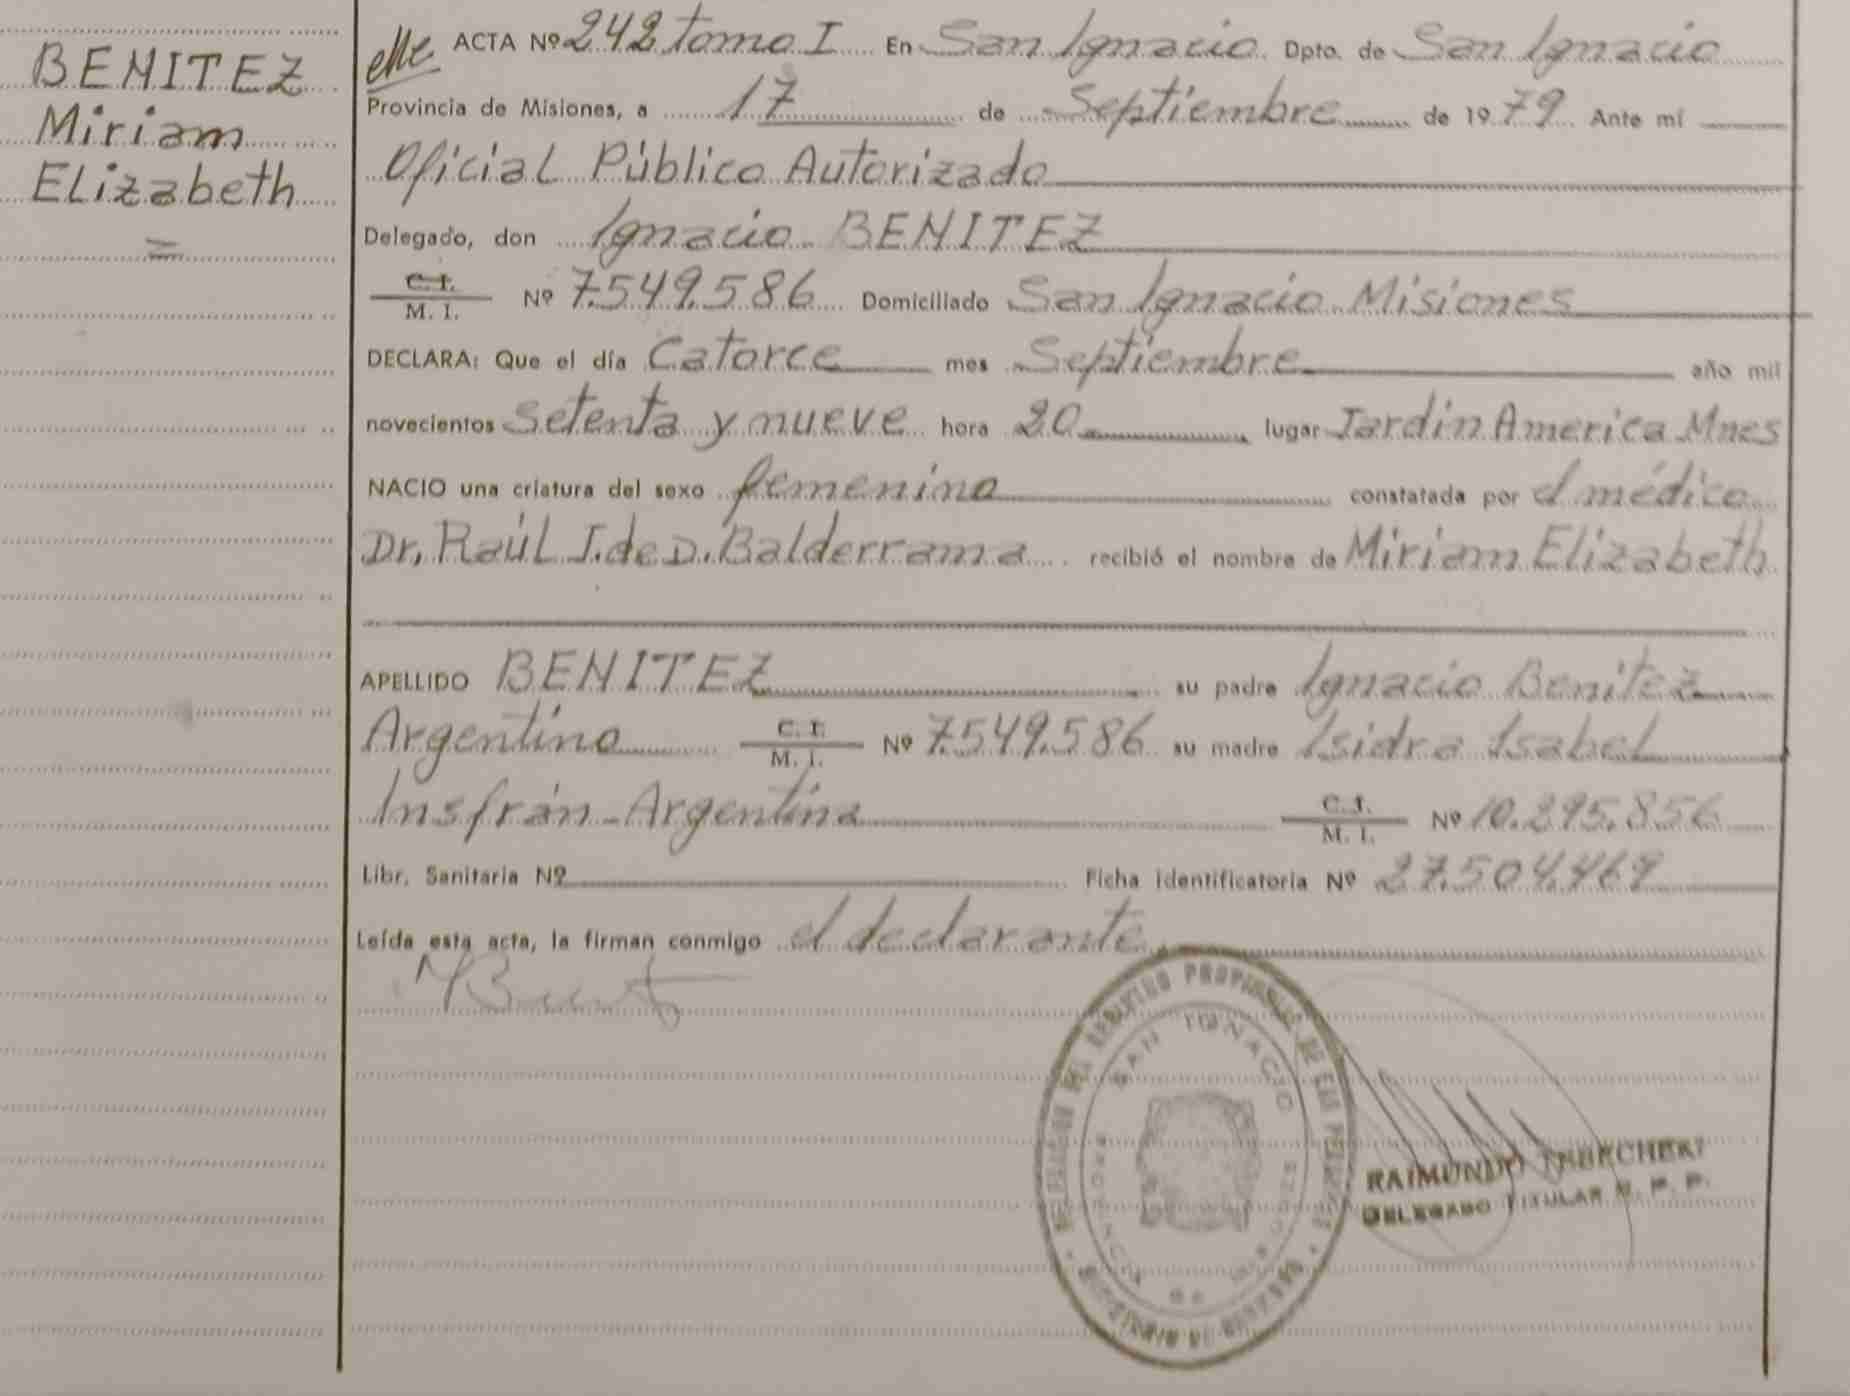 BENITEZ
Miriam
Elizabeth
ACTA Nº 242 tomo I En San Ignacio Dpto. de San Ignacio
Provincia de Misiones, a 17 de Septiembre de 1979 Ante mí
Oficial Público Autorizado
Delegado, don Ignacio BENITEZ
C. I.
M. I. Nº 7.549.586 Domiciliado San Ignacio Misiones
DECLARA: Que el día Catorce mes Septiembre año mil
novecientos Setenta y nueve hora 20 lugar Jardín America Mnes
NACIO una criatura del sexo femenino constatada por el médico
Dr. Raúl J. de D. Balderrama recibió el nombre de Miriam Elizabeth
APELLIDO BENITEZ su padre Ignacio Benitez
Argentino C. I. M. I. Nº 7.549.586 su madre Isidra Isabel
Insfrán - Argentina C. I. M. I. Nº 10.295.856
Libr. Sanitaria Nº Ficha identificatoria Nº 27.504.469
Leída esta acta, la firman conmigo el declarante
SAN IGNACIO
RAIMUNDO
DELEGADO TITULAR R. P. P.